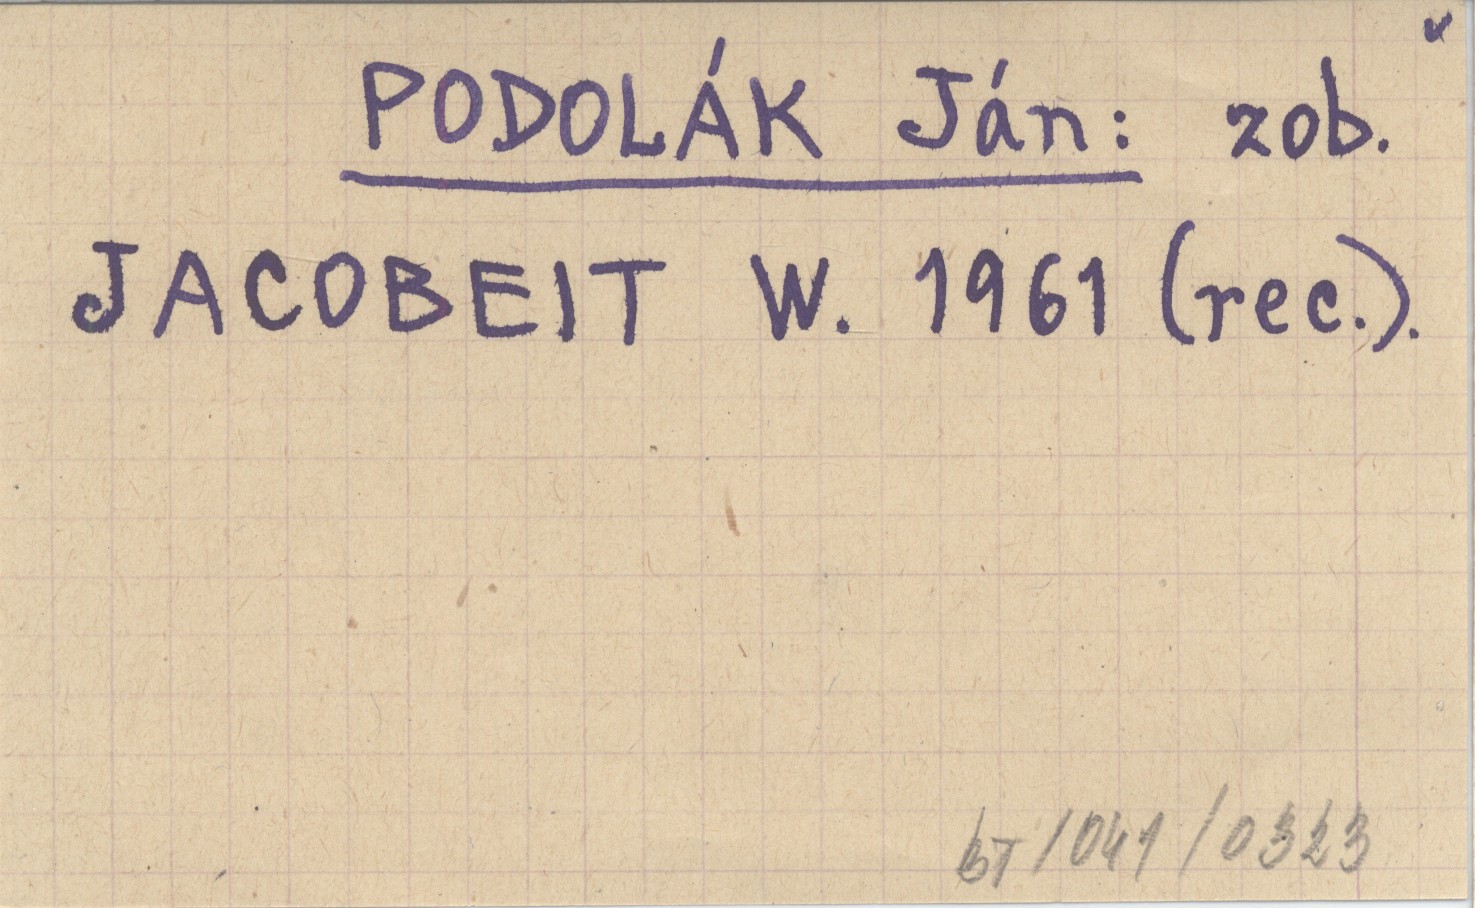 PODOLÁK Ján: zob.
JACOBEIT W. 1961 (rec.).
BT/041/0323